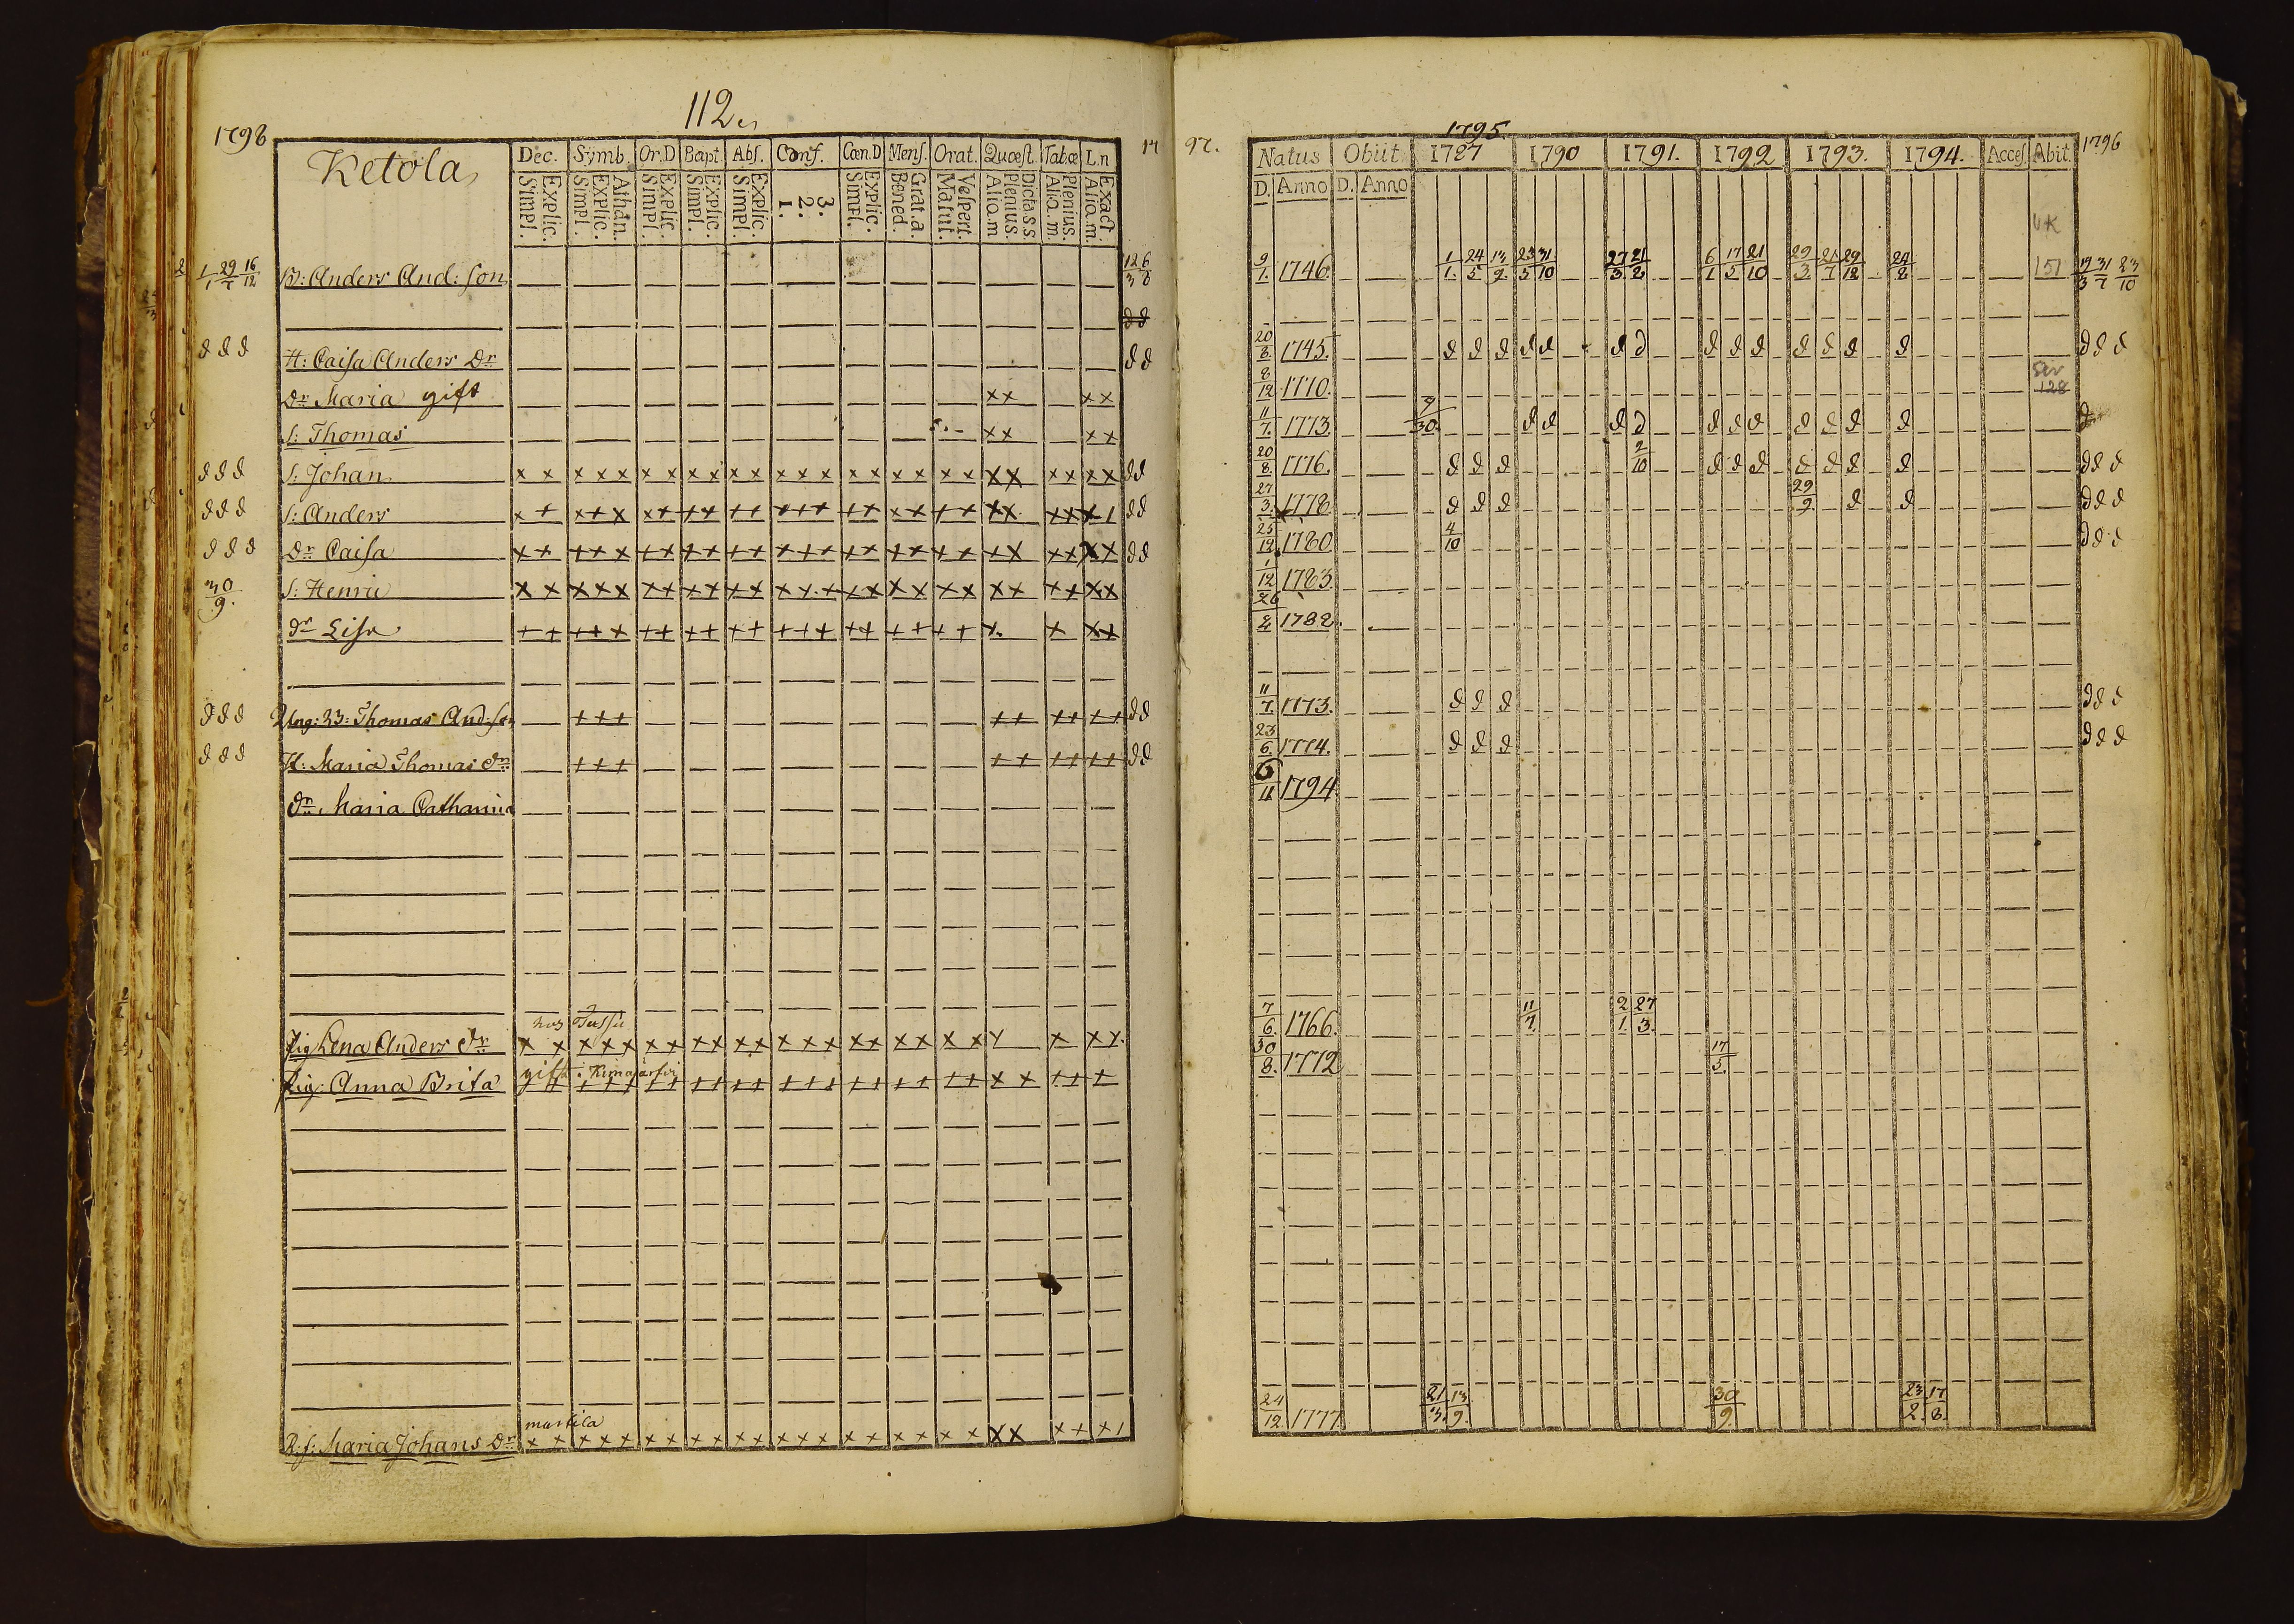 112
1798
Ketola
Dec. Symb. Or.D Bapt. Abs. Conf. Cœn.D Mens. Orat. Quæst. Tabæ L.n
Explic. Simpl. Athan. Explic. Simpl. Explic. Simpl. Explic. Simpl. Explic. Simpl. 3. 2. 1. Explic. Simpl. Grat.a. Bened. Vespert. Matut. Dicta S.S. Plenius. Aliq.m Plenius. Aliq.m. Exact. Aliq.m.
1/1 29/7 16/12 B: Anders And: son
d d
d d d H: Caisa Anders Dr d d
Dr Maria gift xx xx
S: Thomas xx xx
d d d S: Johan x x x x x x x x x x x x x x x x x x x x x x x x x x dd
d d d S: Anders x + x + x x + + + + + + + + + + + x x + + x x x x x 1 dd
d d d Dr Caisa x + + + x + + + + + + + + + + + + + + + + x x x x x dd
30/9 S: Henric x x x x x x + + + + + x x + + x x x x x x x + + x x
dr Lisa + + + + x + + + + + + + + + + + + + + + x x x +
d d d Ung: B: Thomas And:son + + + + + + + + + dd
d d d H: Maria Thomas dr + + + + + + + + + dd
dr Maria Catharina
hos Jussi
Pig Lena Anders dr x x x x x x x x x x x x x x x x x x x x x x x x x
gift
Pig: Anna Brita + + + + + + + + + + + + + + + + + + + + x x + + +
R: s: Maria Johans Dr x x x x x x x x x x x x x x x x x x x x x x x x + x 1
97.
1795
Natus Obiit 1787 1790 1791. 1792 1793. 1794. Acces. Abit. 1796
D. Anno D. Anno
UK
9/1. 1746. 1/1. 24/5 13/9 23/5 31/10 27/3 21/8 6/1 17/5 21/10 29/3 21/7 29/12 24/8 151 19/3 31/7 23/10
20/8. 1745. d d d d d d d d d d d d d d d d d
8/12 1770. 128
11/7. 1773. 30 d d d d d d d d d d d
20/8. 1776. d d d 2/10 d d d d d d d d d d
27/3. 1778. d d d 29/9. d d d d d
25/12 1780 4/10 d d d
1/12 1783
26/8 1788.
11/7. 1773. d d d d d d
23/6. 1774. d d d d d d
6/11 1794
7/6. 1766. 11/7. 2/1. 27/3.
30/8. 1772 17/5.
24/12 1777 21/3. 13/9. 30/9 23/2. 17/8.